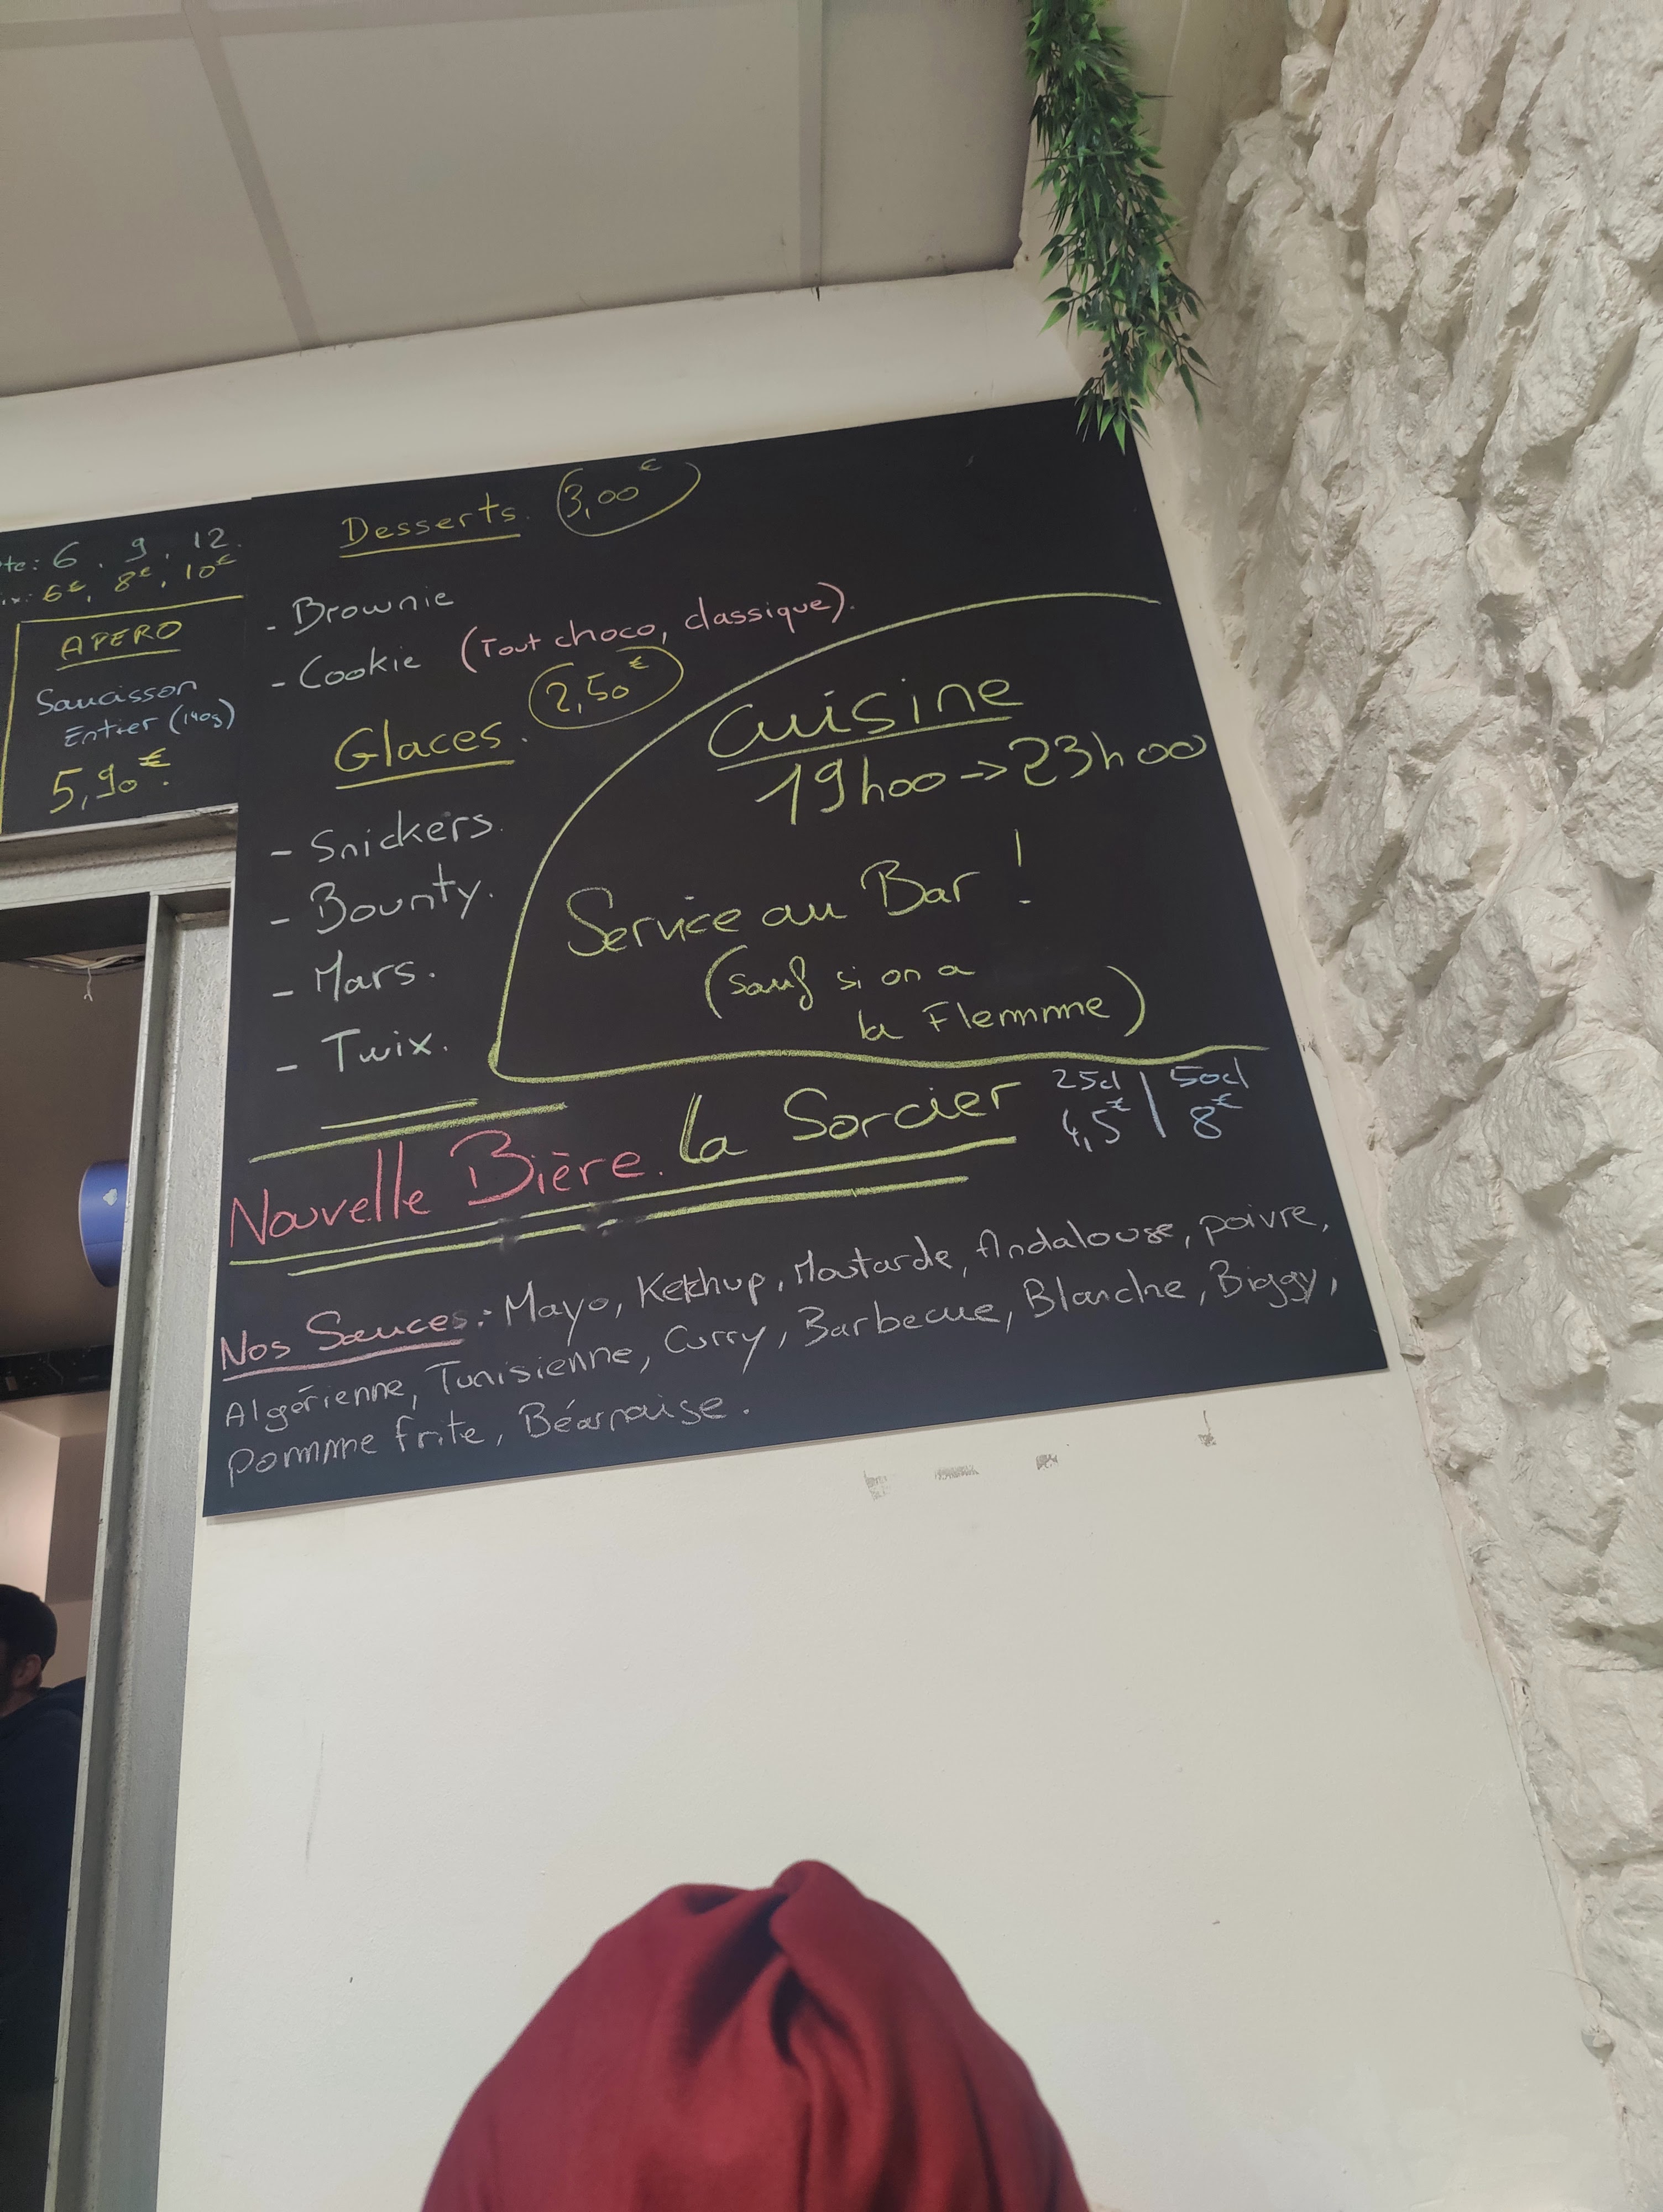 6 . 9 . 12.
6€, 8€, 10€
APERO
Saucisson
Entier (140g)
5,90€.
Desserts. 3,00€
- Brownie
- Cookie (Tout choco, classique).
Glaces. 2,50€
- Snickers.
- Bounty.
- Mars.
- Twix.
Cuisine
19h00 -> 23h00
Service au Bar !
(sauf si on a
la Flemmme)
Nouvelle Bière. La Sorcier
25cl | 50cl
4,5€ | 8€
Nos Sauces : Mayo, Ketchup, Moutarde, Andalouse, poivre,
Algérienne, Tunisienne, Curry, Barbecue, Blanche, Biggy,
Pommme frite, Béarnaise.